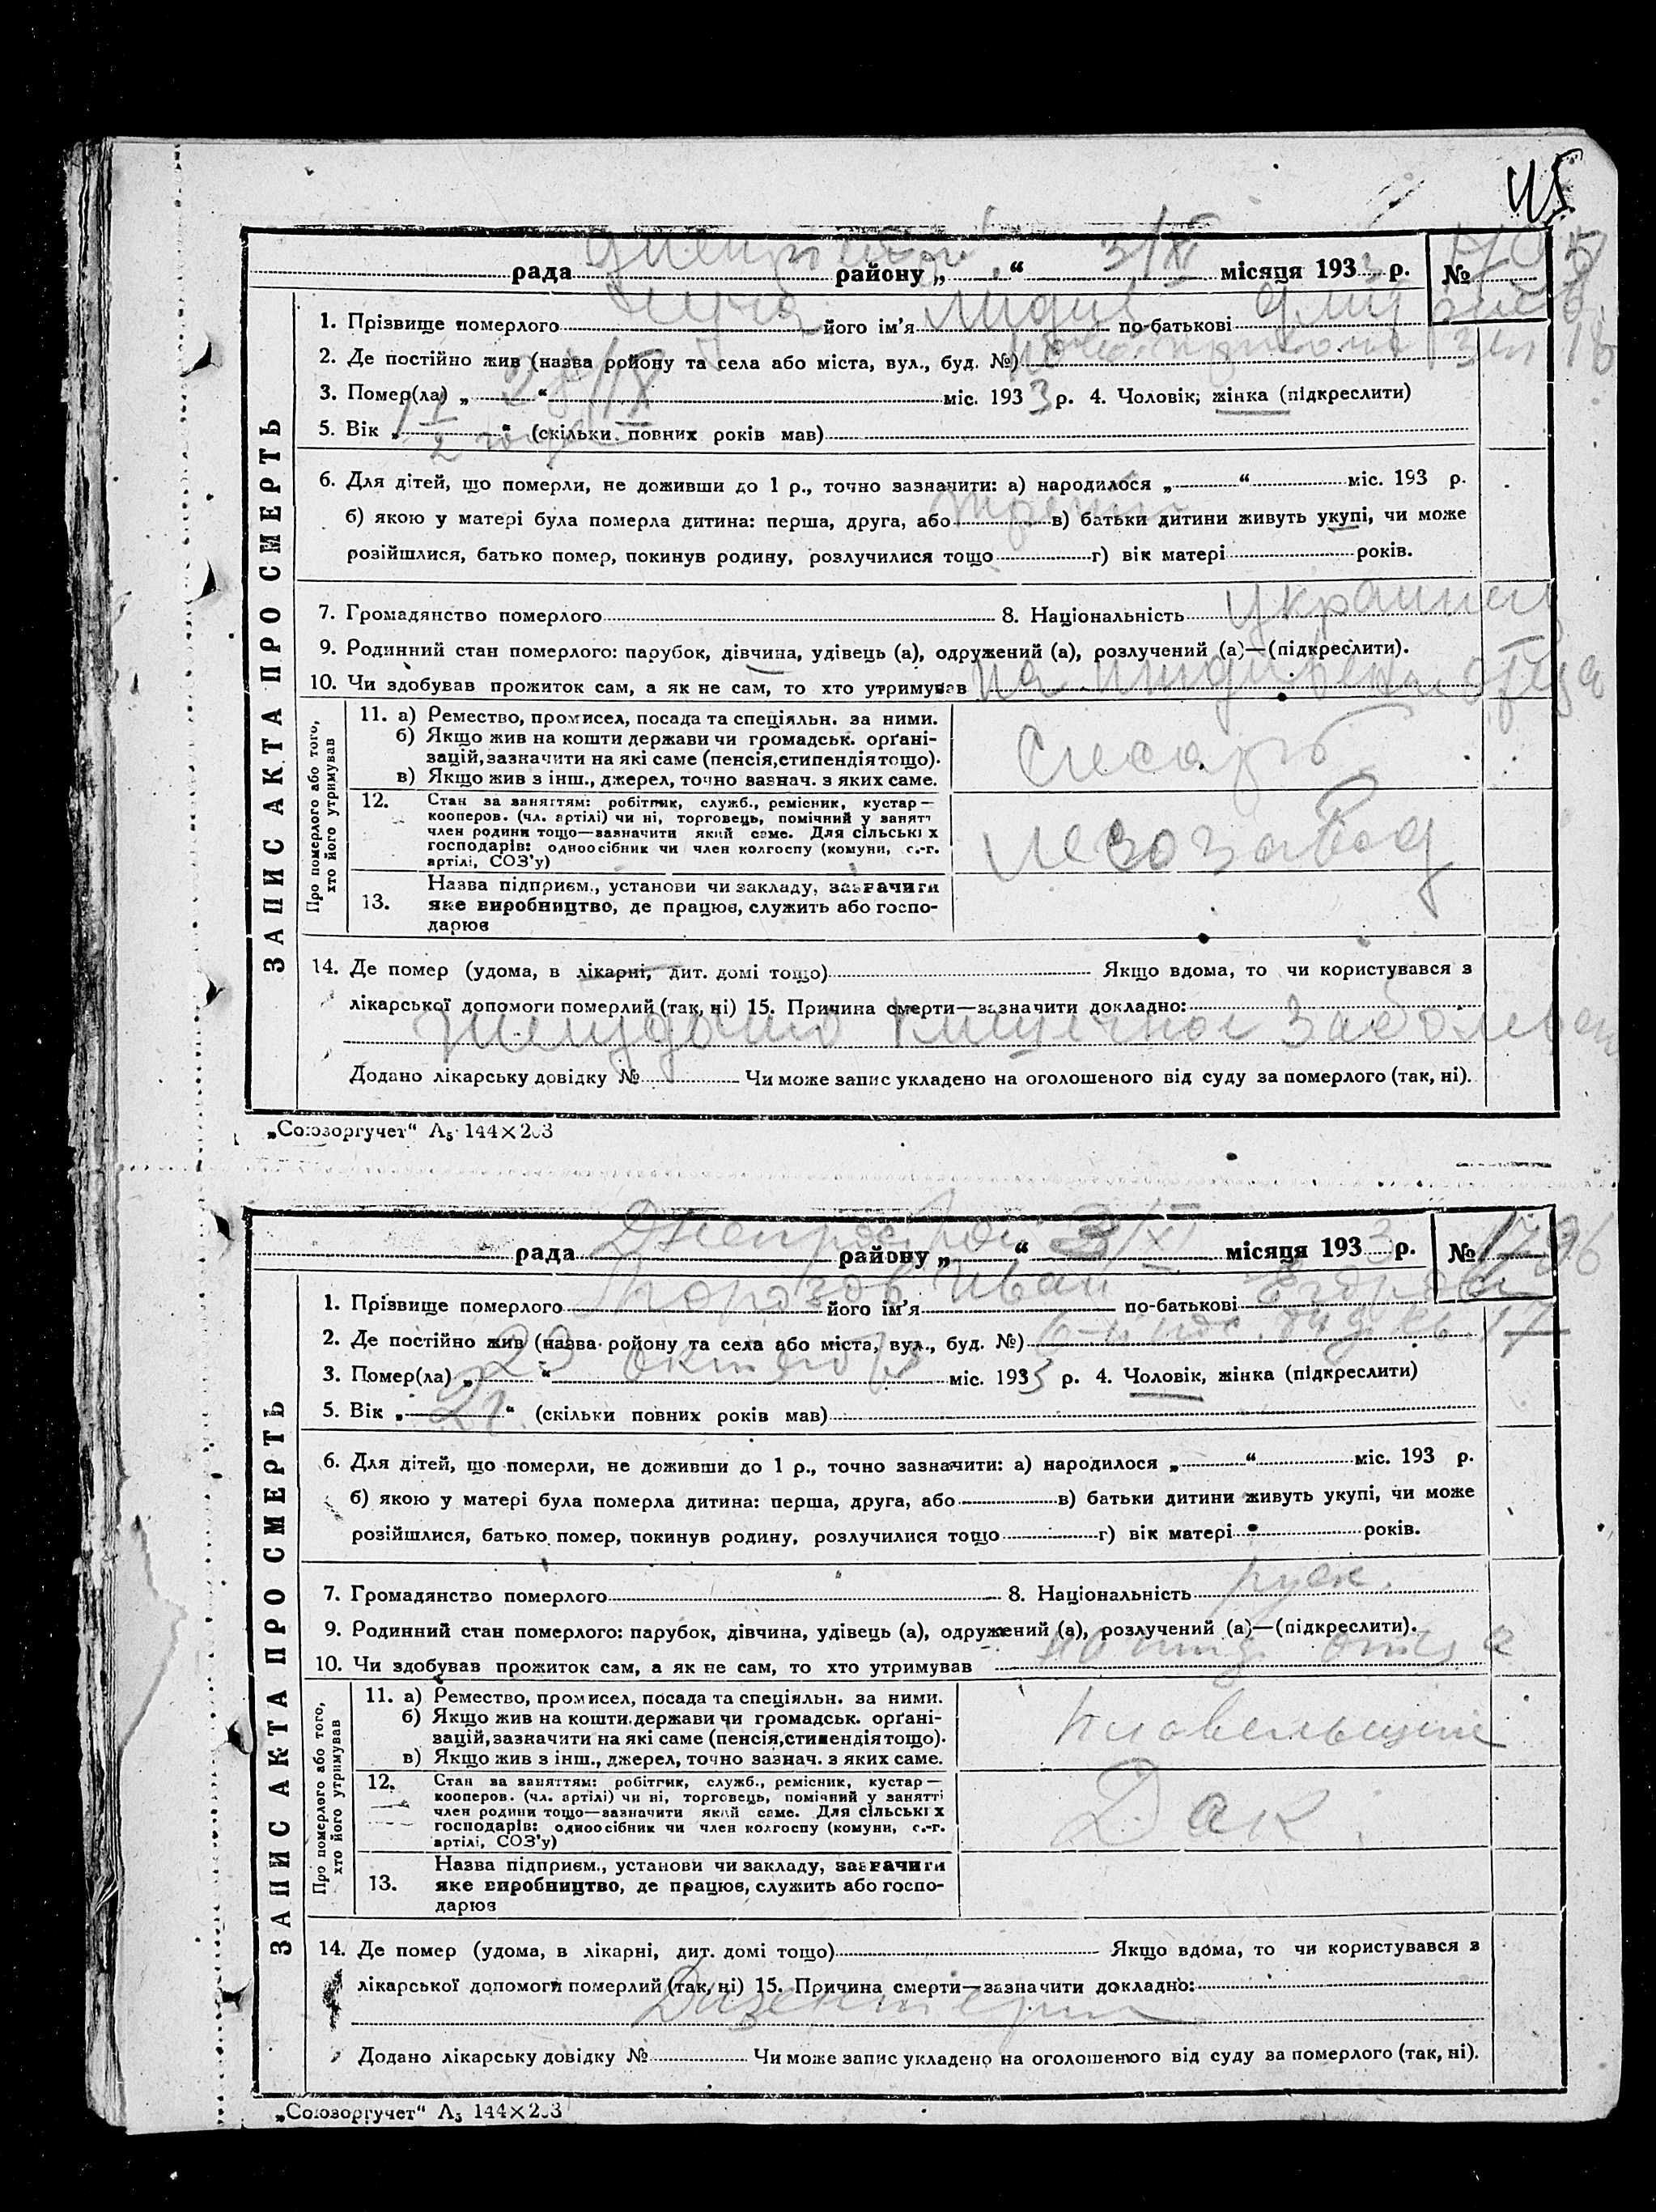 45
рада Днепрострой району „ “ 3/XI місяця 1933 р. №
1. Прізвище померлого його ім'я Лидия по-батькові
2. Де постійно жив (назва району та села або міста, вул., буд. №)
3. Помер(ла) „ 28/IX “ міс. 1933 р. 4. Чоловік, жінка (підкреслити)
5. Вік „ 1 1/2 года “ (скільки повних років мав)
6. Для дітей, що померли, не доживши до 1 р., точно зазначити: а) народилося „ “ міс. 193 р.
б) якою у матері була померла дитина: перша, друга, або в) батьки дитини живуть укупі, чи може
розійшлися, батько помер, покинув родину, розлучилися тощо г) вік матері років.
7. Громадянство померлого 8. Національність
9. Родинний стан померлого: парубок, дівчина, удівець (а), одружений (а), розлучений (а)—(підкреслити).
10. Чи здобував прожиток сам, а як не сам, то хто утримував на иждивении отца
ЗАПИС АКТА ПРО СМЕРТЬ
Про померлого або того,
хто його утримував
11. а) Ремество, промисел, посада та спеціяльн. за ними.
б) Якщо жив на кошти держави чи громадськ. орґані-
зацій, зазначити на які саме (пенсія, стипендія тощо).
в) Якщо жив з інш., джерел, точно зазнач. з яких саме.
слесарь
12. Стан за заняттям: робітник, служб., ремісник, кустар—
кооперов. (чл. артілі) чи ні, торговець, помічний у занятт
член родини тощо—зазначити який саме. Для сільських
господарів: одноосібник чи член колгоспу (комуни, с.-г.
артілі, СОЗ'у)
лесозавод
13. Назва підприєм., установи чи закладу, зазначити
яке виробництво, де працює, служить або госпо-
дарює
14. Де помер (удома, в лікарні, дит. домі тощо) Якщо вдома, то чи користувався з
лікарської допомоги померлий (так, ні) 15. Причина смерти—зазначити докладно:
желудочно кишечное заболеван
Додано лікарську довідку № Чи може запис укладено на оголошеного від суду за померлого (так, ні).
„Союзоргучет“ А₅ 144×203
рада Днепрострой району „ “ 3/XI місяця 1933 р. № 1796
1. Прізвище померлого його ім'я Иван по-батькові
2. Де постійно жив (назва району та села або міста, вул., буд. №) 17
3. Помер(ла) „ 29 “ октября міс. 1933 р. 4. Чоловік, жінка (підкреслити)
5. Вік „ 21 “ (скільки повних років мав)
6. Для дітей, що померли, не доживши до 1 р., точно зазначити: а) народилося „ “ міс. 193 р.
б) якою у матері була померла дитина: перша, друга, або в) батьки дитини живуть укупі, чи може
розійшлися, батько помер, покинув родину, розлучилися тощо г) вік матері років.
7. Громадянство померлого 8. Національність русск.
9. Родинний стан померлого: парубок, дівчина, удівець (а), одружений (а), розлучений (а)—(підкреслити).
10. Чи здобував прожиток сам, а як не сам, то хто утримував на ижд. отца
ЗАПИС АКТА ПРО СМЕРТЬ
Про померлого або того,
хто його утримував
11. а) Ремество, промисел, посада та спеціяльн. за ними.
б) Якщо жив на кошти держави чи громадськ. орґані-
зацій, зазначити на які саме (пенсія, стипендія тощо).
в) Якщо жив з інш., джерел, точно зазнач. з яких саме.
плавельщик
12. Стан за заняттям: робітник, служб., ремісник, кустар—
кооперов. (чл. артілі) чи ні, торговець, помічний у занятті
член родини тощо—зазначити який саме. Для сільських
господарів: одноосібник чи член колгоспу (комуни, с.-г.
артілі, СОЗ'у)
Дак.
13. Назва підприєм., установи чи закладу, зазначити
яке виробництво, де працює, служить або госпо-
дарює
14. Де помер (удома, в лікарні, дит. домі тощо) Якщо вдома, то чи користувався з
лікарської допомоги померлий (так, ні) 15. Причина смерти—зазначити докладно:
Дизентерия
Додано лікарську довідку № Чи може запис укладено на оголошеного від суду за померлого (так, ні).
„Союзоргучет“ А₅ 144×203